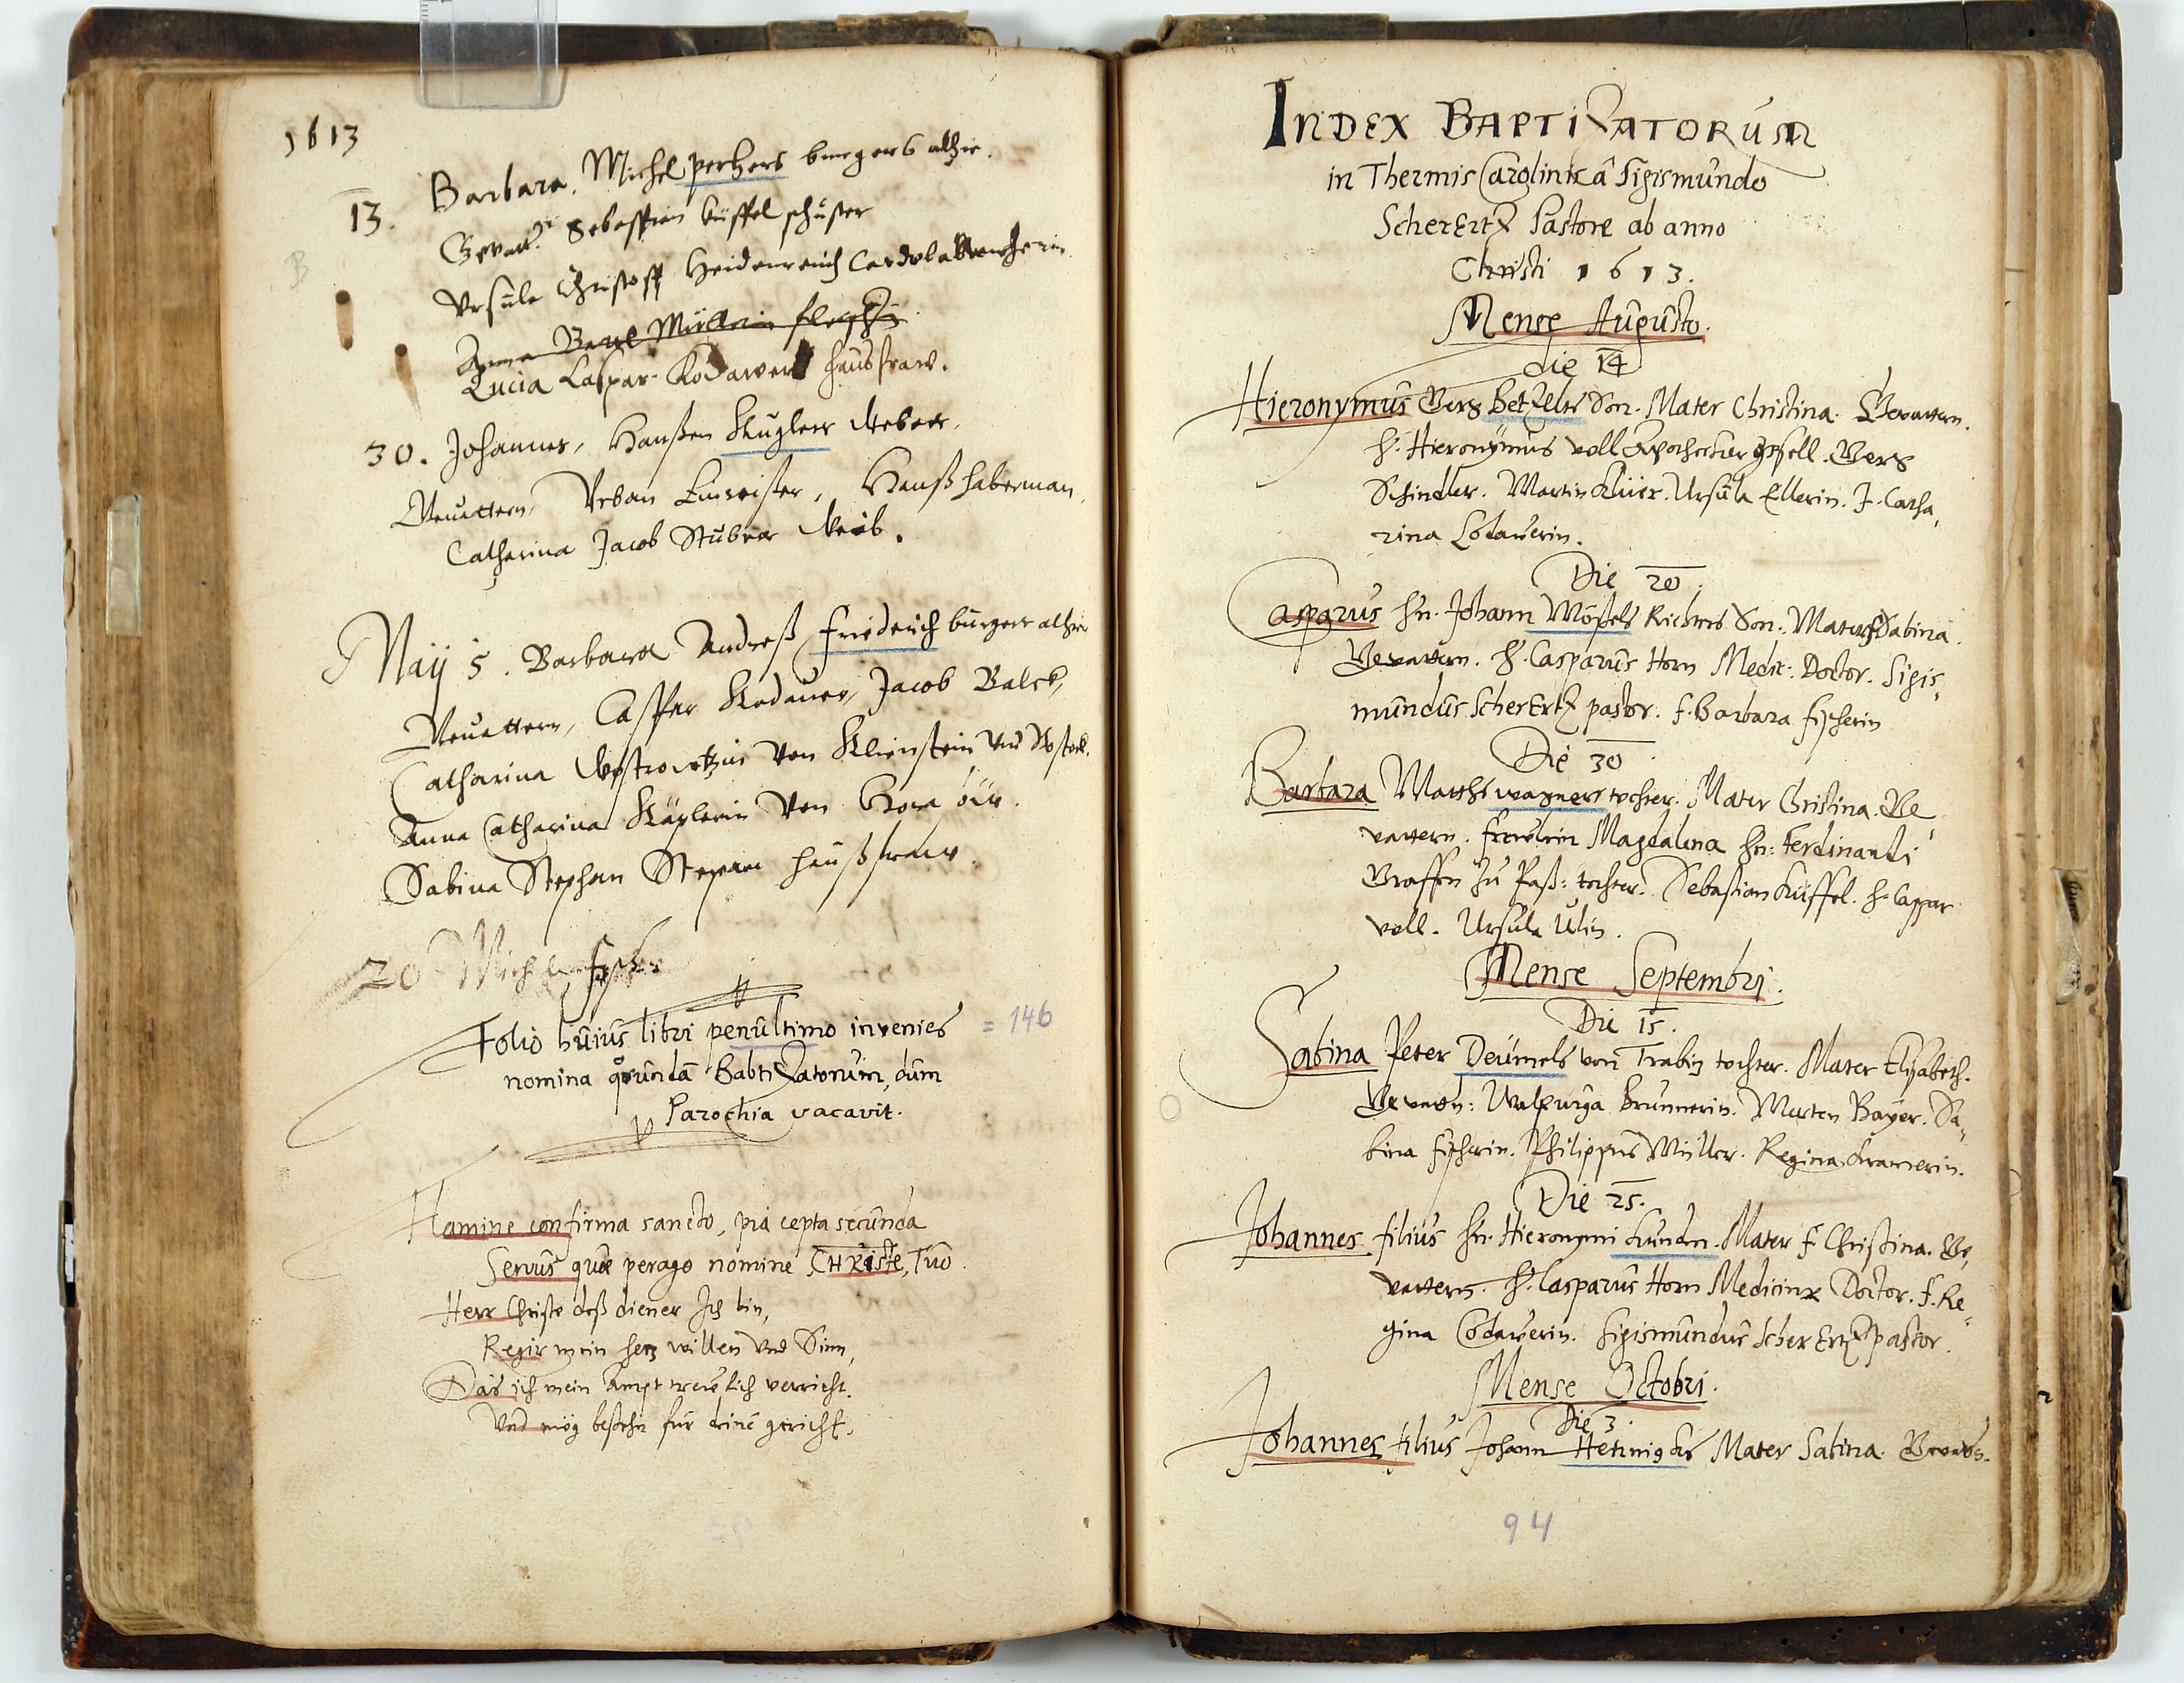 1613
13. Barbara. Michel perkers burgers alhie.
Gevatt. Sebastian küffel schuster
Ursula Christoff Heidenreich
Anna
Lucia Caspar Kodawer hausfraw.
30. Johannes, Hanßen Kuglers Weber,
Gevattern, Urban, Hanß haberman,
Catharina Jacob Stubner Weib.
Maÿ 5. Barbara Andreß friederich burgers alhie
Gevattern, Casper Kodauer, Jacob Balck,
Catharina von Klienstein
Anna Catharina Käplerin Von
Sabina Stephan haußfraw.
20 Michel fischer
Folio huius libri penultimo invenies = 146
nomina quundā Babtizatorum, dum
Parochia vacavit.
Flamine confirma sancto, pia cepta secunda
Servus quæ perago nomine CHRiste, Tuo.
Herr Christe deß diener Ich bin,
Regir mein hertz willen und Sinn,
Das ich mein Ampt trewlich verricht.
Und mög bestehn für deinē gericht.
INDEX BAPTIZATORUM
in Thermis Carolinis â Sigismundo
ScherErtz Pastore ab anno
Christi 1613.
Mense Augusto.
die 14
Hieronymus Betzels Son. Mater Christina. Gevattern.
H. Hieronymus voll Apothecker gesell.
Schindler. Martin. Ursula Ellerin. J. Catha,
rina Codawerin.
Die 20.
Casparus Hn. Johann Mössels Richters Son. Mater Sabina.
Gevattern. H. Casparus Horn Medic: Doctor. Sigis,
mundus ScherErtz pastor. F. Barbara fischerin
Die 30.
Barbara Matthes wagners tochter. Mater Christina. Ge,
vattern. Frewlein Magdalena Hn: Ferdinandi
Graffen zu Paß: tochter. Sebastian Küffel. H. Caspar
voll. Ursula Ulin.
Mense Septembri.
Die 15.
Sabina Peter Deümels von Trabiz tochter. Mater Elisabeth.
Gevattn: Walpurga brunnerin. Marten Bayer. Sa,
bina fischerin. Philippus Müller. Regina Kramerin.
Die 25.
Johannes filius Hn. Hieronymi. Mater F. Christina. Ge,
vattern. H. Casparus Horn Medicinæ Doctor. F. Re,
gina Codawerin. Sigismundus ScherErtz pastor.
Mense Octobri.
Die 3.
Johannes filius Johann Mater Sabina. Gevatt.
94